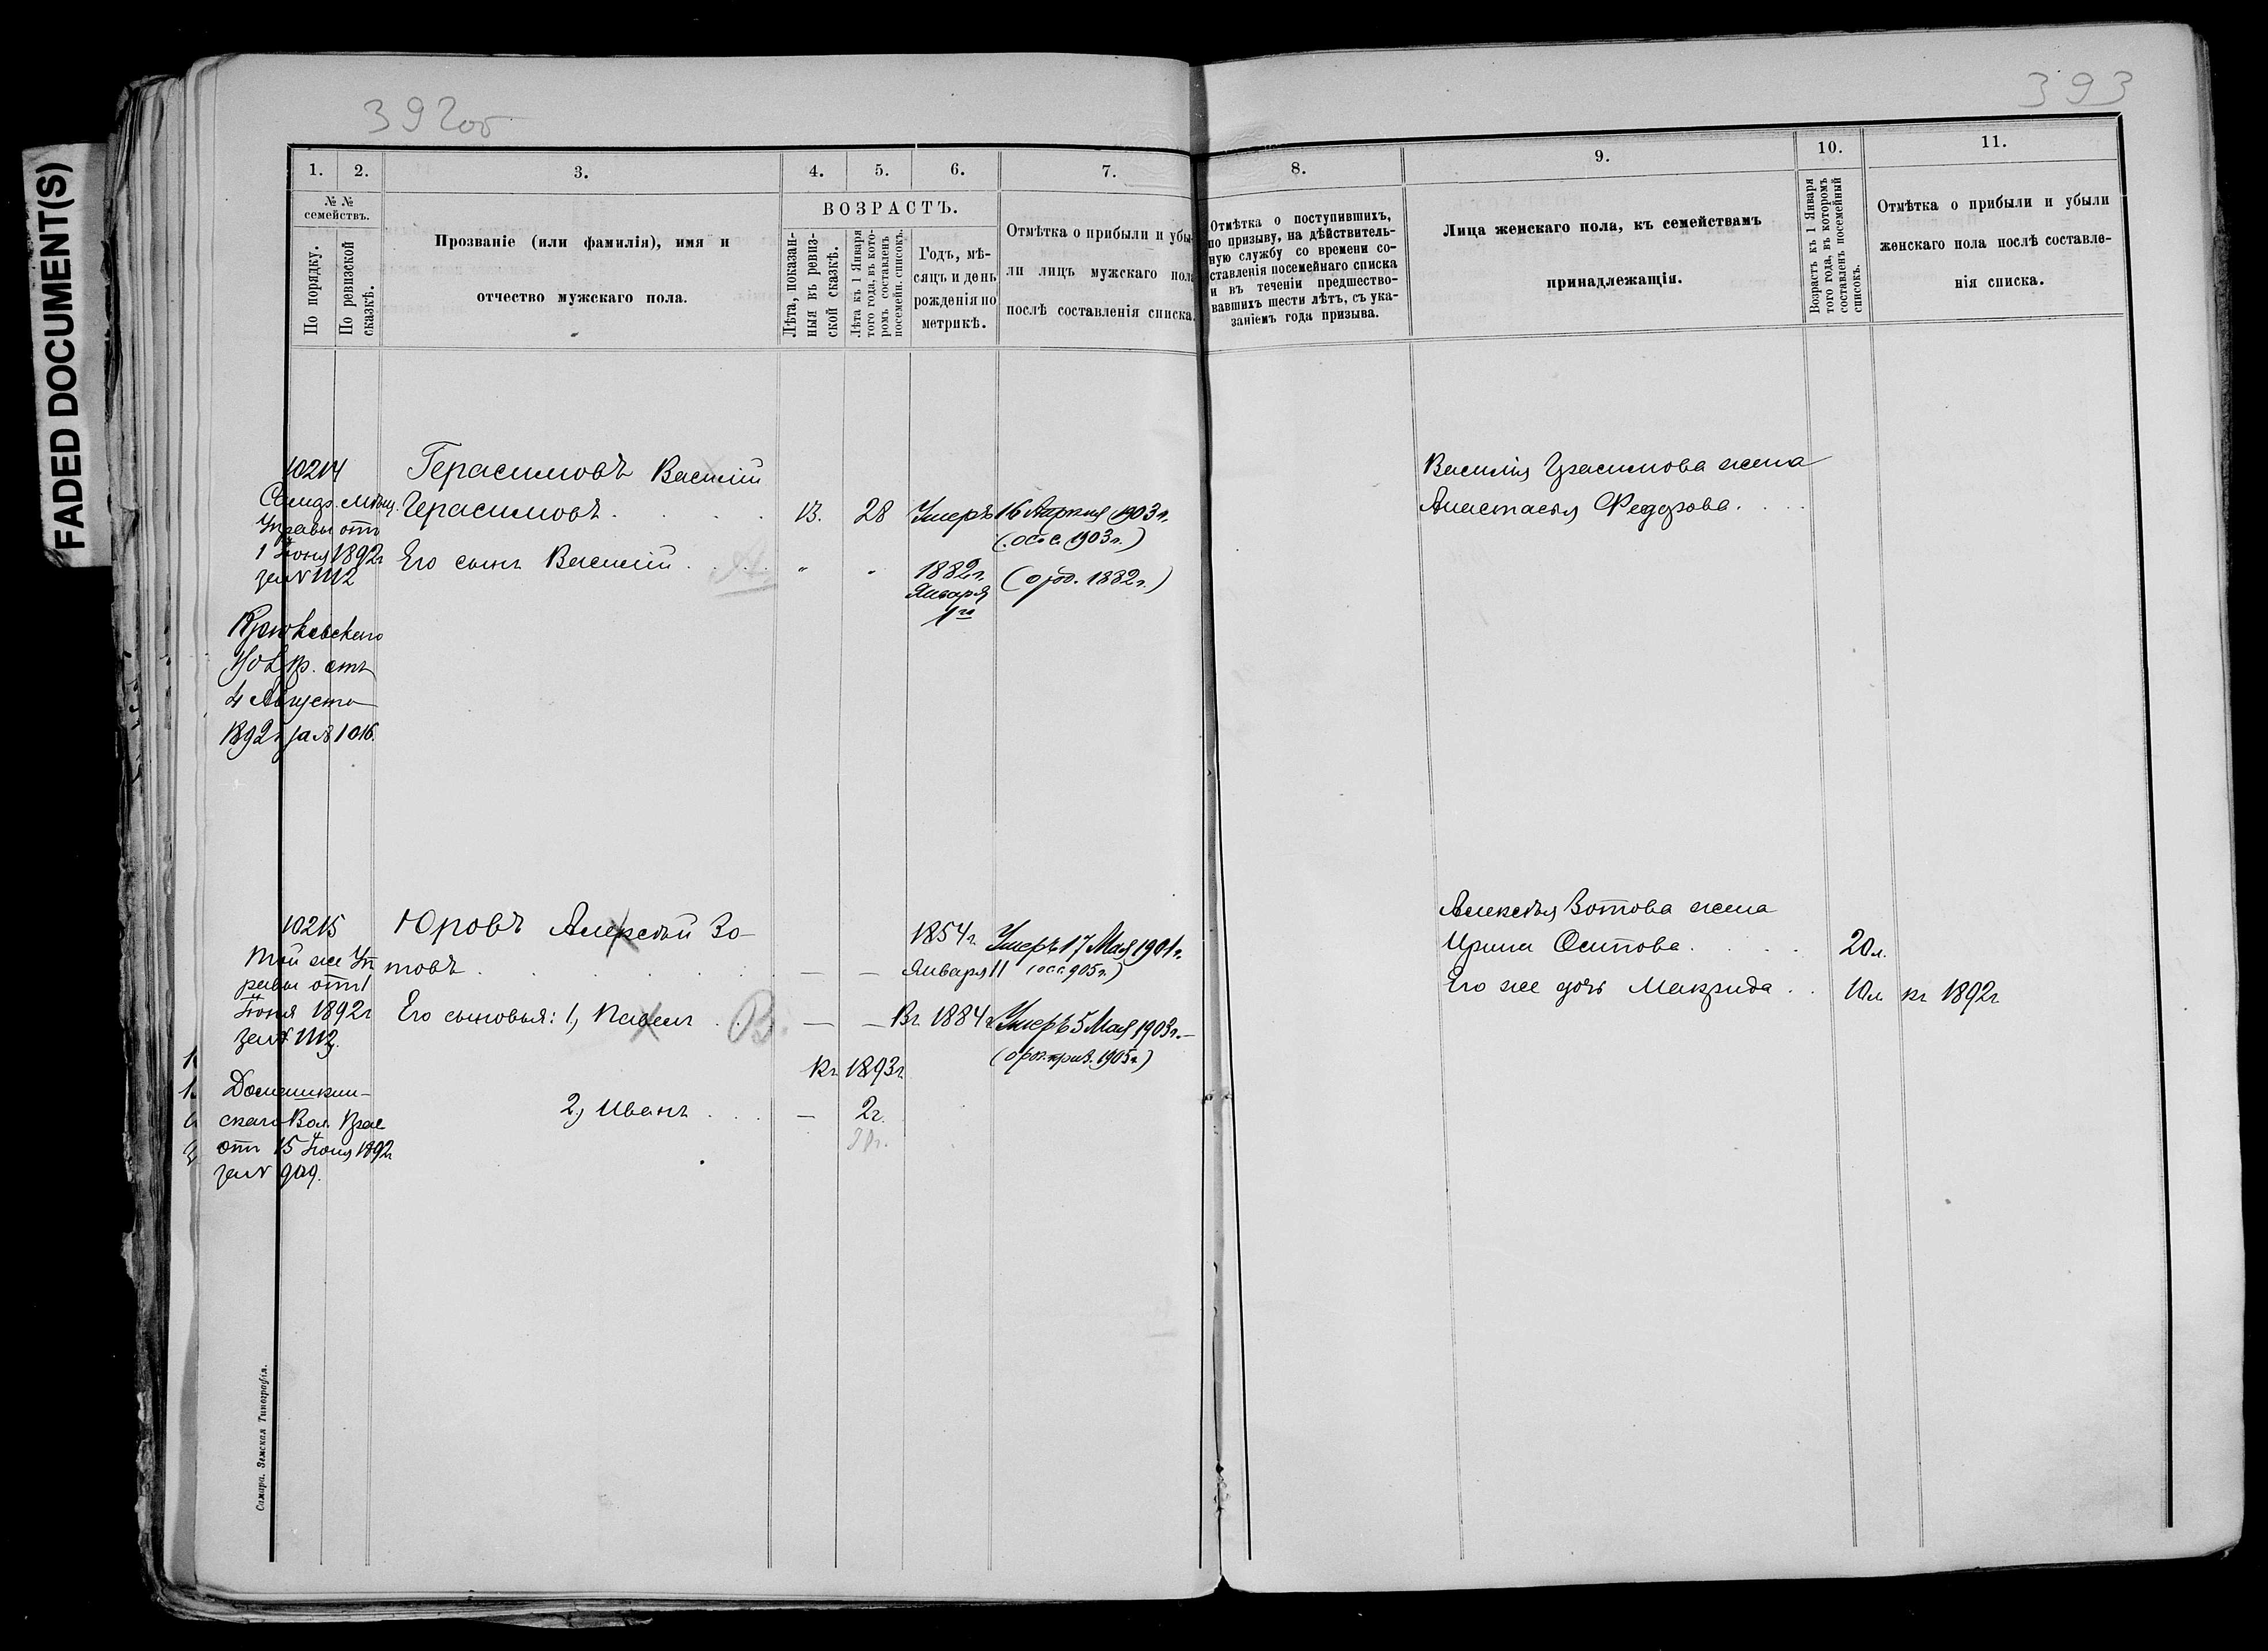 FADED DOCUMENT(S)
392об
393
1.
2.
3.
4.
5.
6.
7.
8.
9.
10.
11.
№ №
семействъ.
По порядку.
По ревизской
сказкѣ.
Прозваніе (или фамилія), имя и
отчество мужскаго пола.
ВОЗРАСТЪ.
Лѣта, показан-
ныя въ ревиз-
ской сказкѣ.
Лѣта къ 1 Января
того года, въ кото-
ромъ составленъ
посемейн. списокъ.
Годъ, мѣ-
сяцъ и день
рожденія по
метрикѣ.
Отмѣтка о прибыли и убы-
ли лицъ мужскаго пола
послѣ составленія списка.
Отмѣтка о поступившихъ,
по призыву, на дѣйствитель-
ную службу со времени со-
ставленія посемейнаго списка
и въ теченіи предшество-
вавшихъ шести лѣтъ, съ ука-
заніемъ года призыва.
Лица женскаго пола, къ семействамъ
принадлежащія.
Возрастъ къ 1 Января
того года, въ которомъ
составленъ посемейный
списокъ.
Отмѣтка о прибыли и убыли
женскаго пола послѣ составле-
нія списка.
10214
Самар. Мѣщ.
Управы отъ
1 Іюня 1892г
за № 1112
Крюковскаго
Вол. Пр. отъ
4 Августа
1892г за № 1016.
Герасимовъ Василій
Герасимовъ . . . . 13. 28 Умеръ 16 Апрѣля 1903 г.
(ос. с. 1903 г.)
Его сынъ Василій . . . . " " 1882 г. (о род. 1882 г.)
Января
1го
Василія Герасимова жена
Анастасья Федорова. . . .
10215
Той же Уп
равы отъ 1
Іюня 1892г
за № 1113.
Домашкин-
скаго Вол. Прав
отъ 15 Іюня 1892г
за № 909.
Юровъ Алексѣй Зо-
товъ . . . . . . — — 1854 г. Января 11 Умеръ 17 Мая 1901 г.
(ос. с. 905 г.)
Его сыновья: 1, Павелъ . . . В. — — Въ 1884 г. Умеръ 5 Мая 1903 г.—
(о роз. приз. 1905 г.)
Къ 1893г.
2, Иванъ . . . — 2г.
Алексѣя Зотова жена
Ирина Осипова . . . . 20 л.
Его же дочь Макрида . . 10 л къ 1892г
Самара. Земская Типографія.